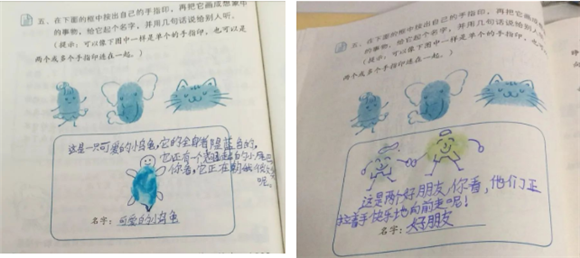 五、在下面的框中按出自己的手指印,再把它画成想象中
的事物,给它起个名字,并用几句话说给别人听。
(提示:可以像下图中一样是单个的手指印,也可以是
两个或多个手指印连在一起。)
这是一只可爱的小海龟,它的全身都是蓝色的,
它还有一
的小尾巴
你看,它正在朝
呢。
名字:可爱的小海龟
五、在下面的框中按出自己的手指印,再把它画成想象中
的事物,给它起个名字,并用几句话说给别人听。
(提示:可以像下图中一样是单个的手指印,也可以是
两个或多个手指印连在一起。)
这是两个好朋友,你看,他们正
拉着手快乐地向前走呢!
名字:好朋友